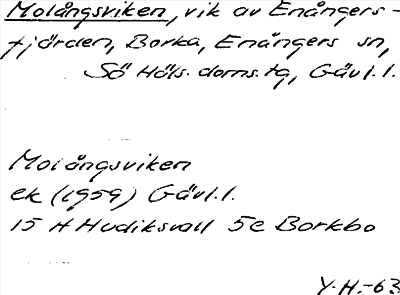 Molångsviken, vik av Enångers-
fjärden, Borka, Enångers sn,
Sö Häls. doms. tg, Gävl. l.
Molångsviken
ek (1959) Gävl. l.
15 H Hudiksvall 5c Borkbo
Y. H. -63